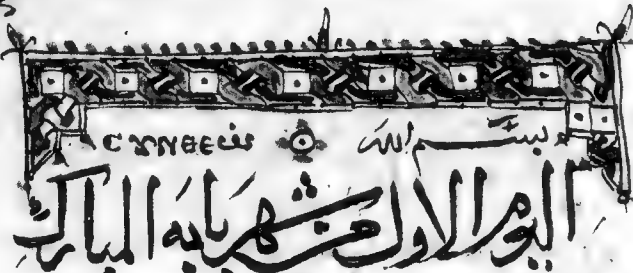 ⲤⲨⲚⲐⲈⲰ بسم الله
اليوم الاول من شهر بابه المبارك